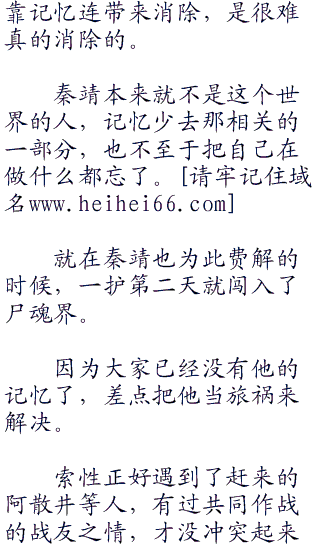 靠记忆连带来消除，是很难
真的消除的。
秦靖本来就不是这个世
界的人，记忆少去那相关的
一部分，也不至于把自己在
做什么都忘了。[请牢记住域
名www.heihei66.com]
就在秦靖也为此费解的
时候，一护第二天就闯入了
尸魂界。
因为大家已经没有他的
记忆了，差点把他当旅祸来
解决。
索性正好遇到了赶来的
阿散井等人，有过共同作战
的战友之情，才没冲突起来